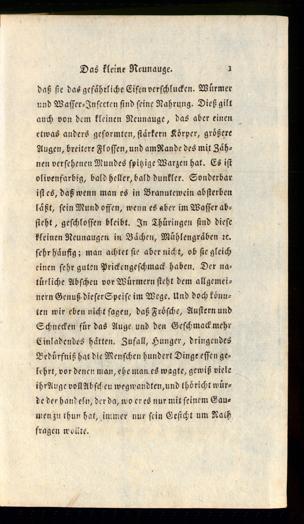 Das kleine Neunauge. 3
daß sie das gefährliche Eisen verschlucken. Würmer
und Wasser-Insecten sind seine Nahrung. Dieß gilt
auch von dem kleinen Neunauge, das aber einen
etwas anders geformten, stärkern Körper, größere
Augen, breitere Flossen, und am Rande des mit Zäh-
nen versehenen Mundes spitzige Warzen hat. Es ist
olivenfarbig, bald heller, bald dunkler. Sonderbar
ist es, daß wenn man es in Branntewein absterben
läßt, sein Mund offen, wenn es aber im Wasser ab-
steht, geschlossen bleibt. In Thüringen sind diese
kleinen Neunaugen in Bächen, Mühlengräben ꝛc.
sehr häufig; man achtet sie aber nicht, ob sie gleich
einen sehr guten Prickengeschmack haben. Der na-
türliche Abscheu vor Würmern steht dem allgemei-
nern Genuß dieser Speise im Wege. Und doch könn-
ten wir eben nicht sagen, daß Frösche, Austern und
Schnecken für das Auge und den Geschmack mehr
Einladendes hätten. Zufall, Hunger, dringendes
Bedürfniß hat die Menschen hundert Dinge essen ge-
lehrt, vor denen man, ehe man es wagte, gewiß viele
ihr Auge voll Abscheu wegwandten, und thöricht wür-
de der handeln, der da, wo er es nur mit seinem Gau-
men zu thun hat, immer nur sein Gesicht um Rath
fragen wollte.